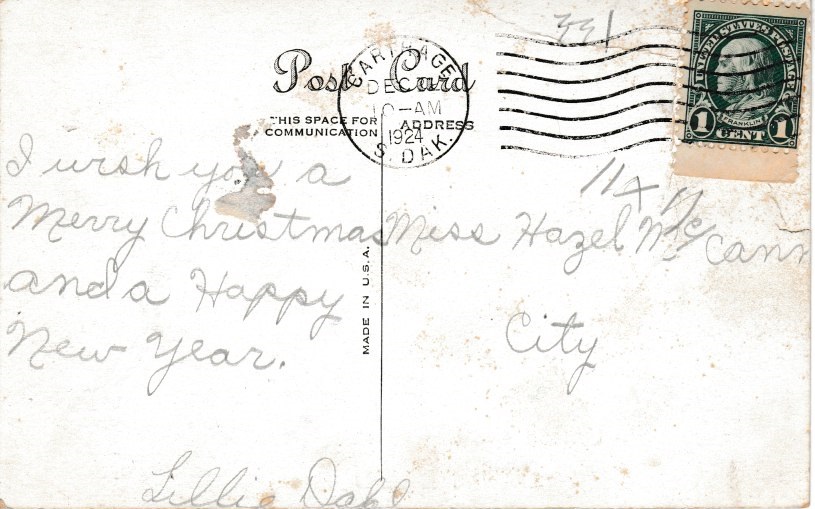 331
Post Card
CARTHAGE
DEC
10-AM
1924
S. DAK.
UNITED STATES POSTAGE
FRANKLIN
1 CENT 1
THIS SPACE FOR
COMMUNICATION
ADDRESS
I wish you a
Merry Christmas
and a Happy
New Year.
Lillie Dahl
MADE IN U.S.A.
11 x
Miss Hazel McCann
City